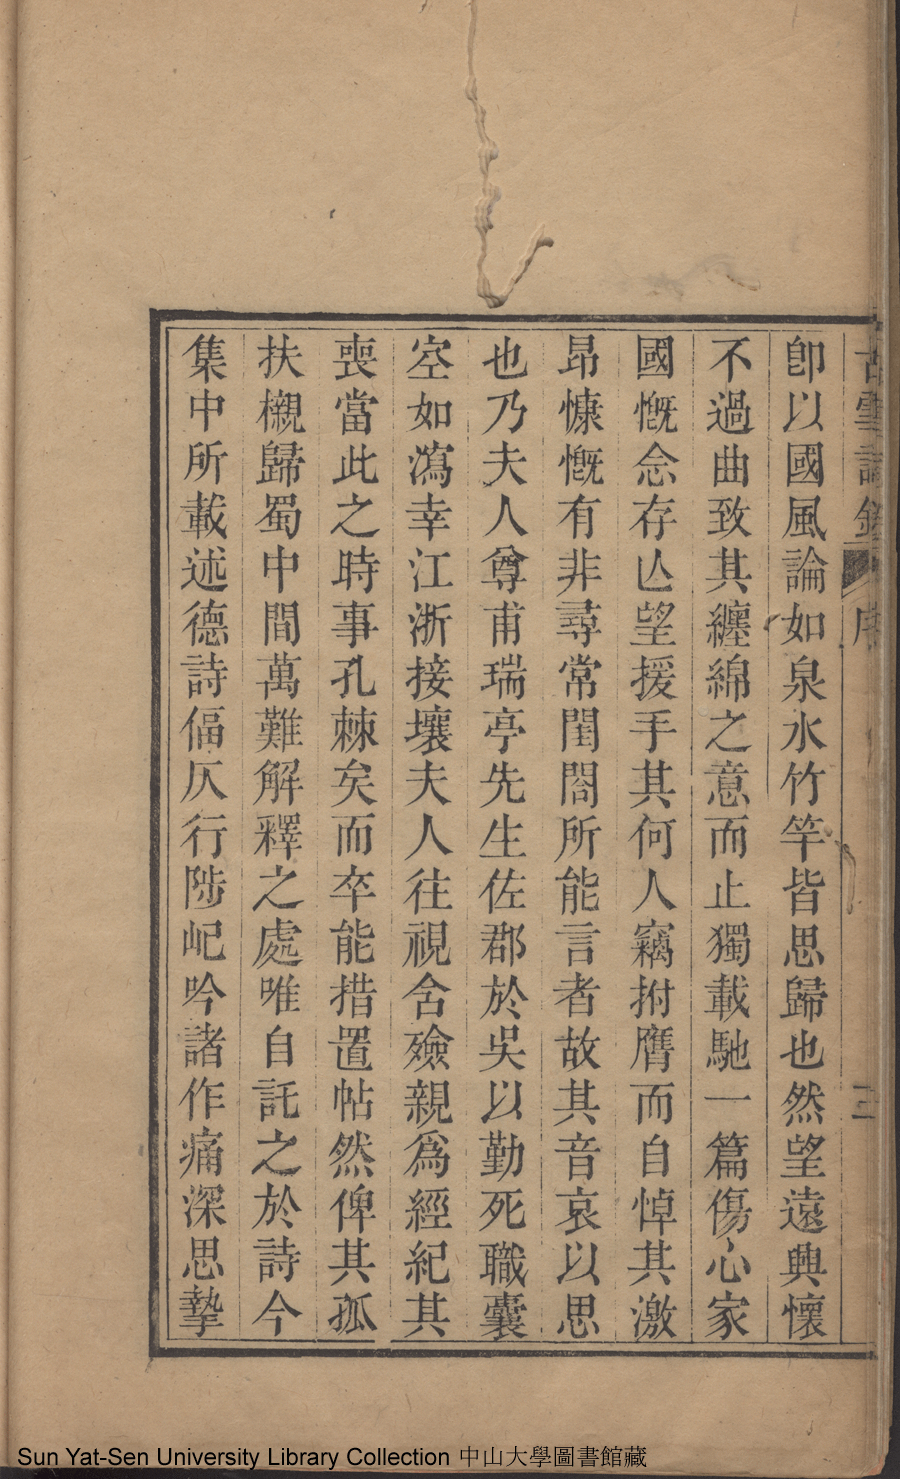 古雪詩鈔 序 三
卽以國風論如泉水竹竿皆思歸也然望遠興懷
不過曲致其纏綿之意而止獨載馳一篇傷心家
國慨念存亾望援手其何人竊拊膺而自悼其激
昂慷慨有非尋常閨閤所能言者故其音哀以思
也乃夫人尊甫瑞亭先生佐郡於吳以勤死職囊
空如瀉幸江浙接壤夫人往視含殮親爲經紀其
喪當此之時事孔棘矣而卒能措置帖然俾其孤
扶櫬歸蜀中間萬難解釋之處唯自託之於詩今
集中所載述德詩偪仄行陟屺吟諸作痛深思摯
Sun Yat-Sen University Library Collection 中山大學圖書館藏